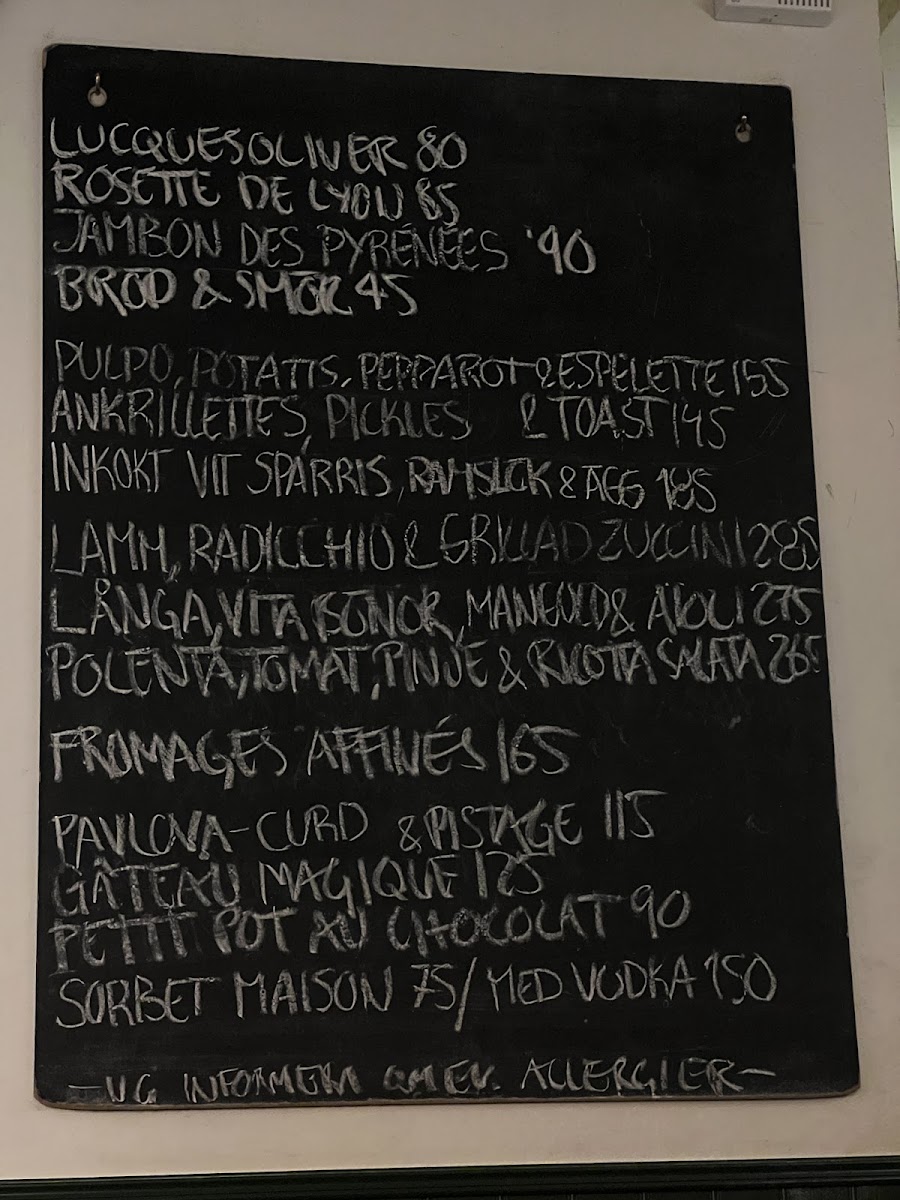 LUCQUESOLIVER 80
ROSETTE DE LYON 85
JAMBON DES PYRÉNÉES 90
BRÖD & SMÖR 45
PULPO, POTATIS, PEPPAROT & ESPELETTE 155
ANKRILLETTES, PICKLES & TOAST 145
INKOKT VIT SPARRIS, RAMSLÖK & ÄGG 185
LAMM, RADICCHIO & GRILLAD ZUCCINI 285
LÅNGA, VITA BÖNOR, MANGOLD & AÏOLI 275
POLENTA, TOMAT, PINJE & RICOTTA SALATA 265
FROMAGES AFFINÉS 165
PAVLOVA-CURD & PISTAGE 115
GÂTEAU MAGIQUE 125
PETIT POT AU CHOCOLAT 90
SORBET MAISON 75/MED VODKA 150
-VG INFORMERA OM EV. ALLERGIER-